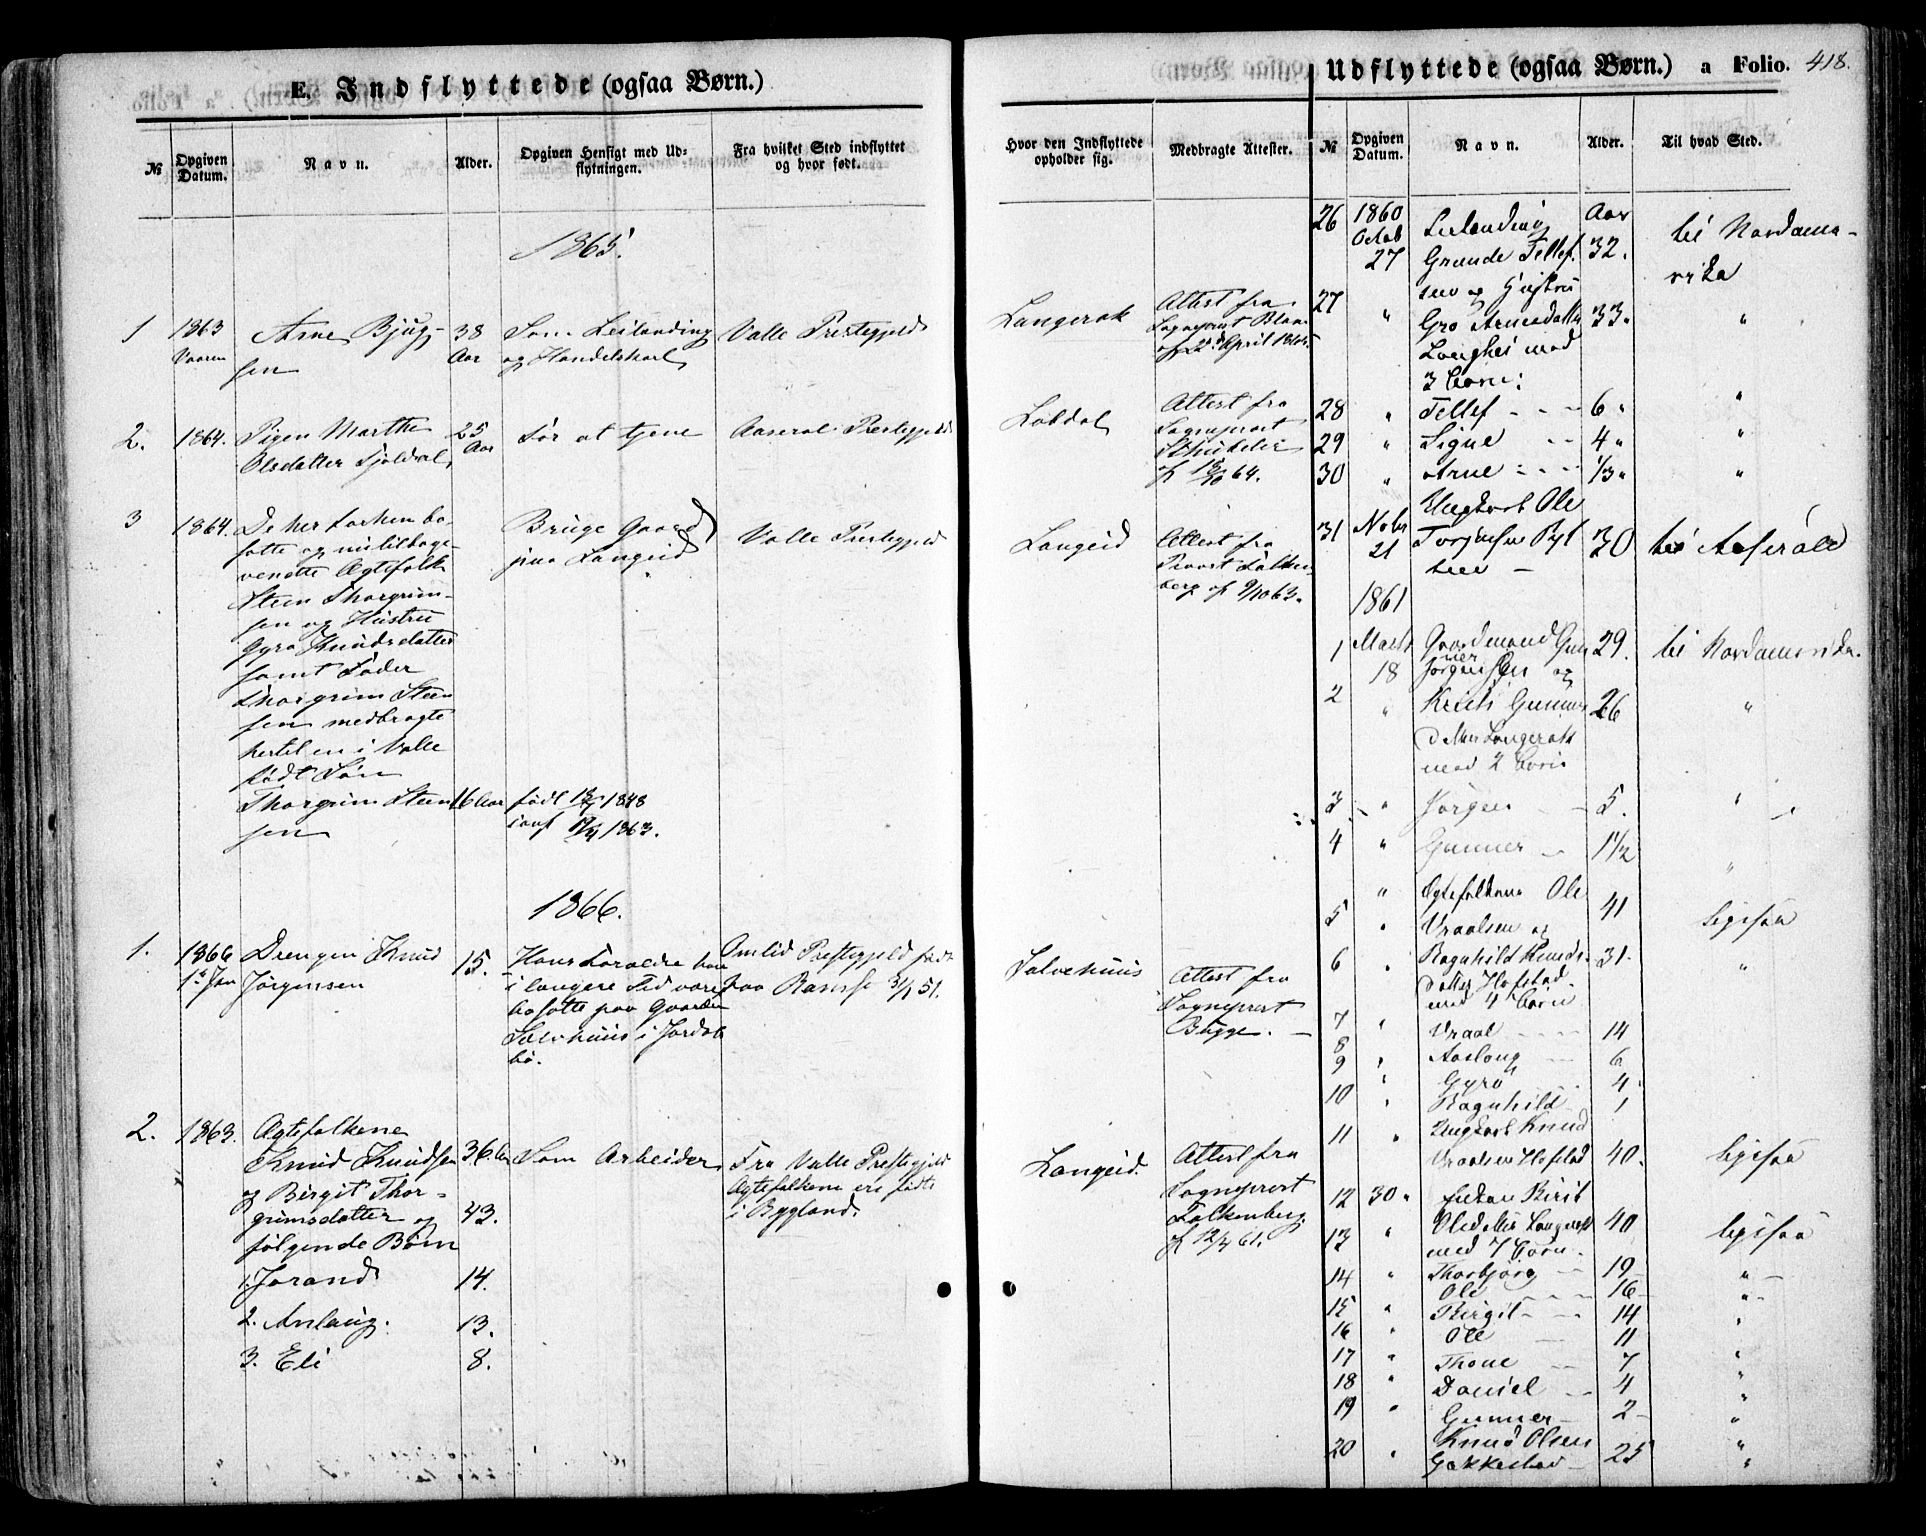 E. Indflyttede (ogsaa Børn.)
№
Opgiven Datum.
Navn.
Alder.
Opgiven Hensigt med Ud-
flytningen.
Fra hvilket Sted indflyttet
og hvor født.
Hvor den Indflyttede
opholder sig.
Medbragte Attester.
1865.
1
1863
Vaaren
Arne Bjug-
sen
38
Aar
Som Leilænding
og Handelskarl
Valle Prestegjeld
Langerak
Attest fra
Sogneprest
2.
1864.
Pigen Marthe
Olsdatter
25
Aar
For at tjene
Aaseral Prestegjeld
Attest fra
Sogneprest
64.
3
1864.
De her forhen bo-
satte og nu tilbage-
vendte Ægtefolk
Steen Thorgrim-
sen og Hustru
Gyro Knudsdatter
samt Fader
Thorgrim Steen
sen medbragte
hertil en i Valle
født Søn
Thorgrim Steen
sen
16 Aar
Bruge Gaard
paa Langeid
født 1848
conf 1863.
Valle Prestegjeld
Langeid
Attest fra
Provst Falken
berg af 9/10 63.
1866.
1.
1866
1ste Jan
Drengen Knud
Jørgensen
15.
Hans Forældre have
i længere Tid været
bosatte paa Gaarden
Salvehuus i Jordal
bø.
Omlid Prestegjeld født
paa 51.
Salvehuus
Attest fra
Sogneprest
Bugge.
2.
1863.
Ægtefolkene
Knud Knudsen
og Birgit Thor-
grimsdatter og
følgende Børn
36 Aar
43.
1. Jorand
14.
2. Anlaug.
13.
3. Eli
8.
Som Arbeider
Fra Valle Prestegjeld
Ægtefolkene ere fødte
i Bygland.
Langeid.
Attest fra
Sogneprest
Falkenberg
af 12/4 61.
Udflyttede (ogsaa Børn.) a Folio. 418.
№
Opgiven Datum.
Navn.
Alder.
Til hvad Sted.
26
1860
Octob
27
Leilænding
Grunde Tellef.
sen og Hustru
Aar
32.
til Nordame-
rika
27
"
Gro Arnesdatter
Langhei med
3 børn:
33.
"
28 " Tellef 6 "
29 " Signe 4 "
30 " Arne 1/3 "
31
Nobr
21
Ungkarl Ole
Torjusen
30
til Aaserald
1861
1
Marts
18
Gaardmand Gun
ner
Jørgensen og
29.
til Nordamerika.
2
"
Kristi Gunners
datter Langerak
med 2 børn
26
"
3 " Jørgen 5. "
4 " Gunner 1 1/2 "
"
5
"
Ægtefolkene Ole
Vraalsen og
41
ligesaa
6
"
Ragnhild Knuds-
datter Hofstad
med 4 børn
31.
"
7 " Vraal 14
8 " Aaslaug 6
9 " Gyro 4
10 " Ragnhild 1
11
"
Ungkarl Knud
Vraalsen Hofstad
40.
ligesaa
12
30 "
Enkan Birit
Olsdatter Langerak
med 7 børn.
40
ligesaa
13 " Thorbjørg 19 "
14 " Ole 16 "
15 " Birgit 14 "
16 " Ole 11 "
17 " Thone 7 "
18 " Daniel 4 "
19 " Gunner 2 "
20
"
Knud Olsen
25
"